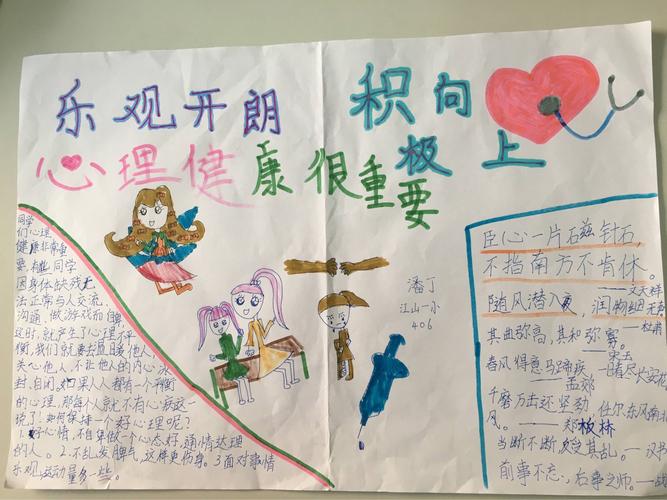 乐观开朗 积极向上
心理健康很重要
同学
们心理
健康非常重
要,有些同学
因身体缺残无
法正常与人交流,
沟通,做游戏而自卑,
这时,就产生了心理不平
衡,我们就要去直接他人,
关心他人,不让他人的内心冰
封,自闭,如果人人都有一个平衡
的心理,那每个人就不有心疾这一
说了!如何保持一个好心理呢?
1.好心情,不自卑做一个心态好,通情达理
的人。2.不乱发脾气,这样更伤身。3面对事情
乐观运动量多一些。
潘丁
江山一小
406
臣心一片石兹针石,
不指南方不肯休。
——文天祥
随风潜入夜,润物细无声
——杜甫
其曲弥高,其和弥寡。
——宋玉
春风得意马蹄疾,一日看尽长安
——孟郊
千磨万击还坚劲,任尔东风南北
风。——郑板林
当断不断,反受其乱。——汉书
前事不忘,后事之师。——战